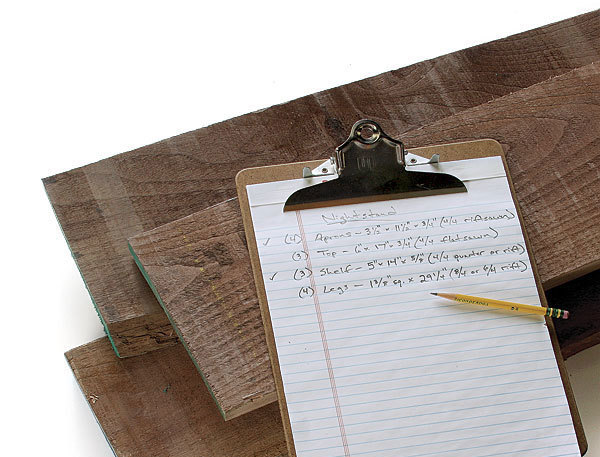 Nightstand
✓ (4) Aprons – 3 1/2" × 11 1/2" × 3/4" (4/4 riftsawn)
(3) Top – 6" × 14" × 3/4" (4/4 flatsawn)
✓ (3) Shelf – 5" × 14" × 5/8" (4/4 quarter or rift)
(4) Legs – 1 3/8" sq. × 29 1/4" (8/4 or 6/4 rift)